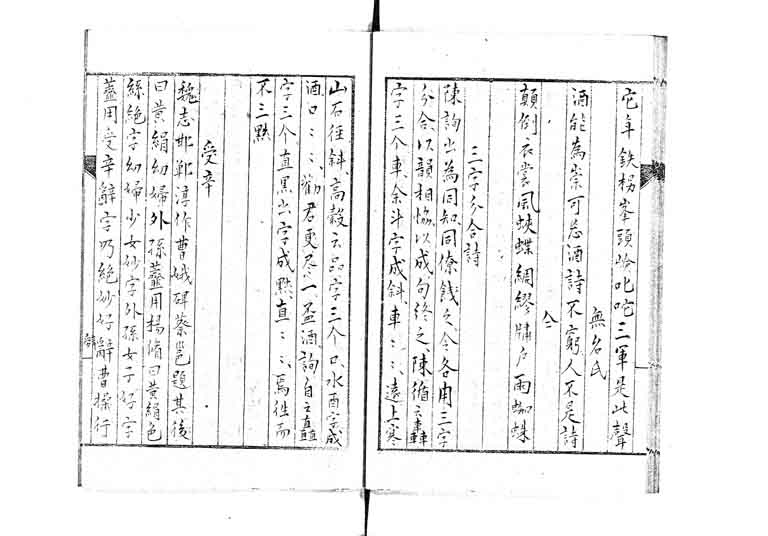 它年鉄枴峯頭岭叱咤三軍是此聲
無名氏
酒能為祟可忘酒詩不窮人不是詩
仝
顛倒衣裳風蛺蝶綢繆牖户雨蜘蛛
三字分合詩
陳詢出為同知同僚餞之令各用三字
分合以韻相恊以成句終之陳循云轟
字三个車余斗字成斜車〻〻遠上寒
山石徑斜高穀云品字三个口水酉字成
酒口〻〻勸君更尽一盃酒詢自云矗
字三个直黒出字成黜直〻〻焉往而
不三黜
受辛
魏志邯鄲淳作曹娥碑蔡邕題其後
曰黄絹幼婦外孫虀臼楊脩曰黄絹色
絲絶字幼婦少女妙字外孫女子好字
虀臼受辛辭字乃絶妙好辭曹操行